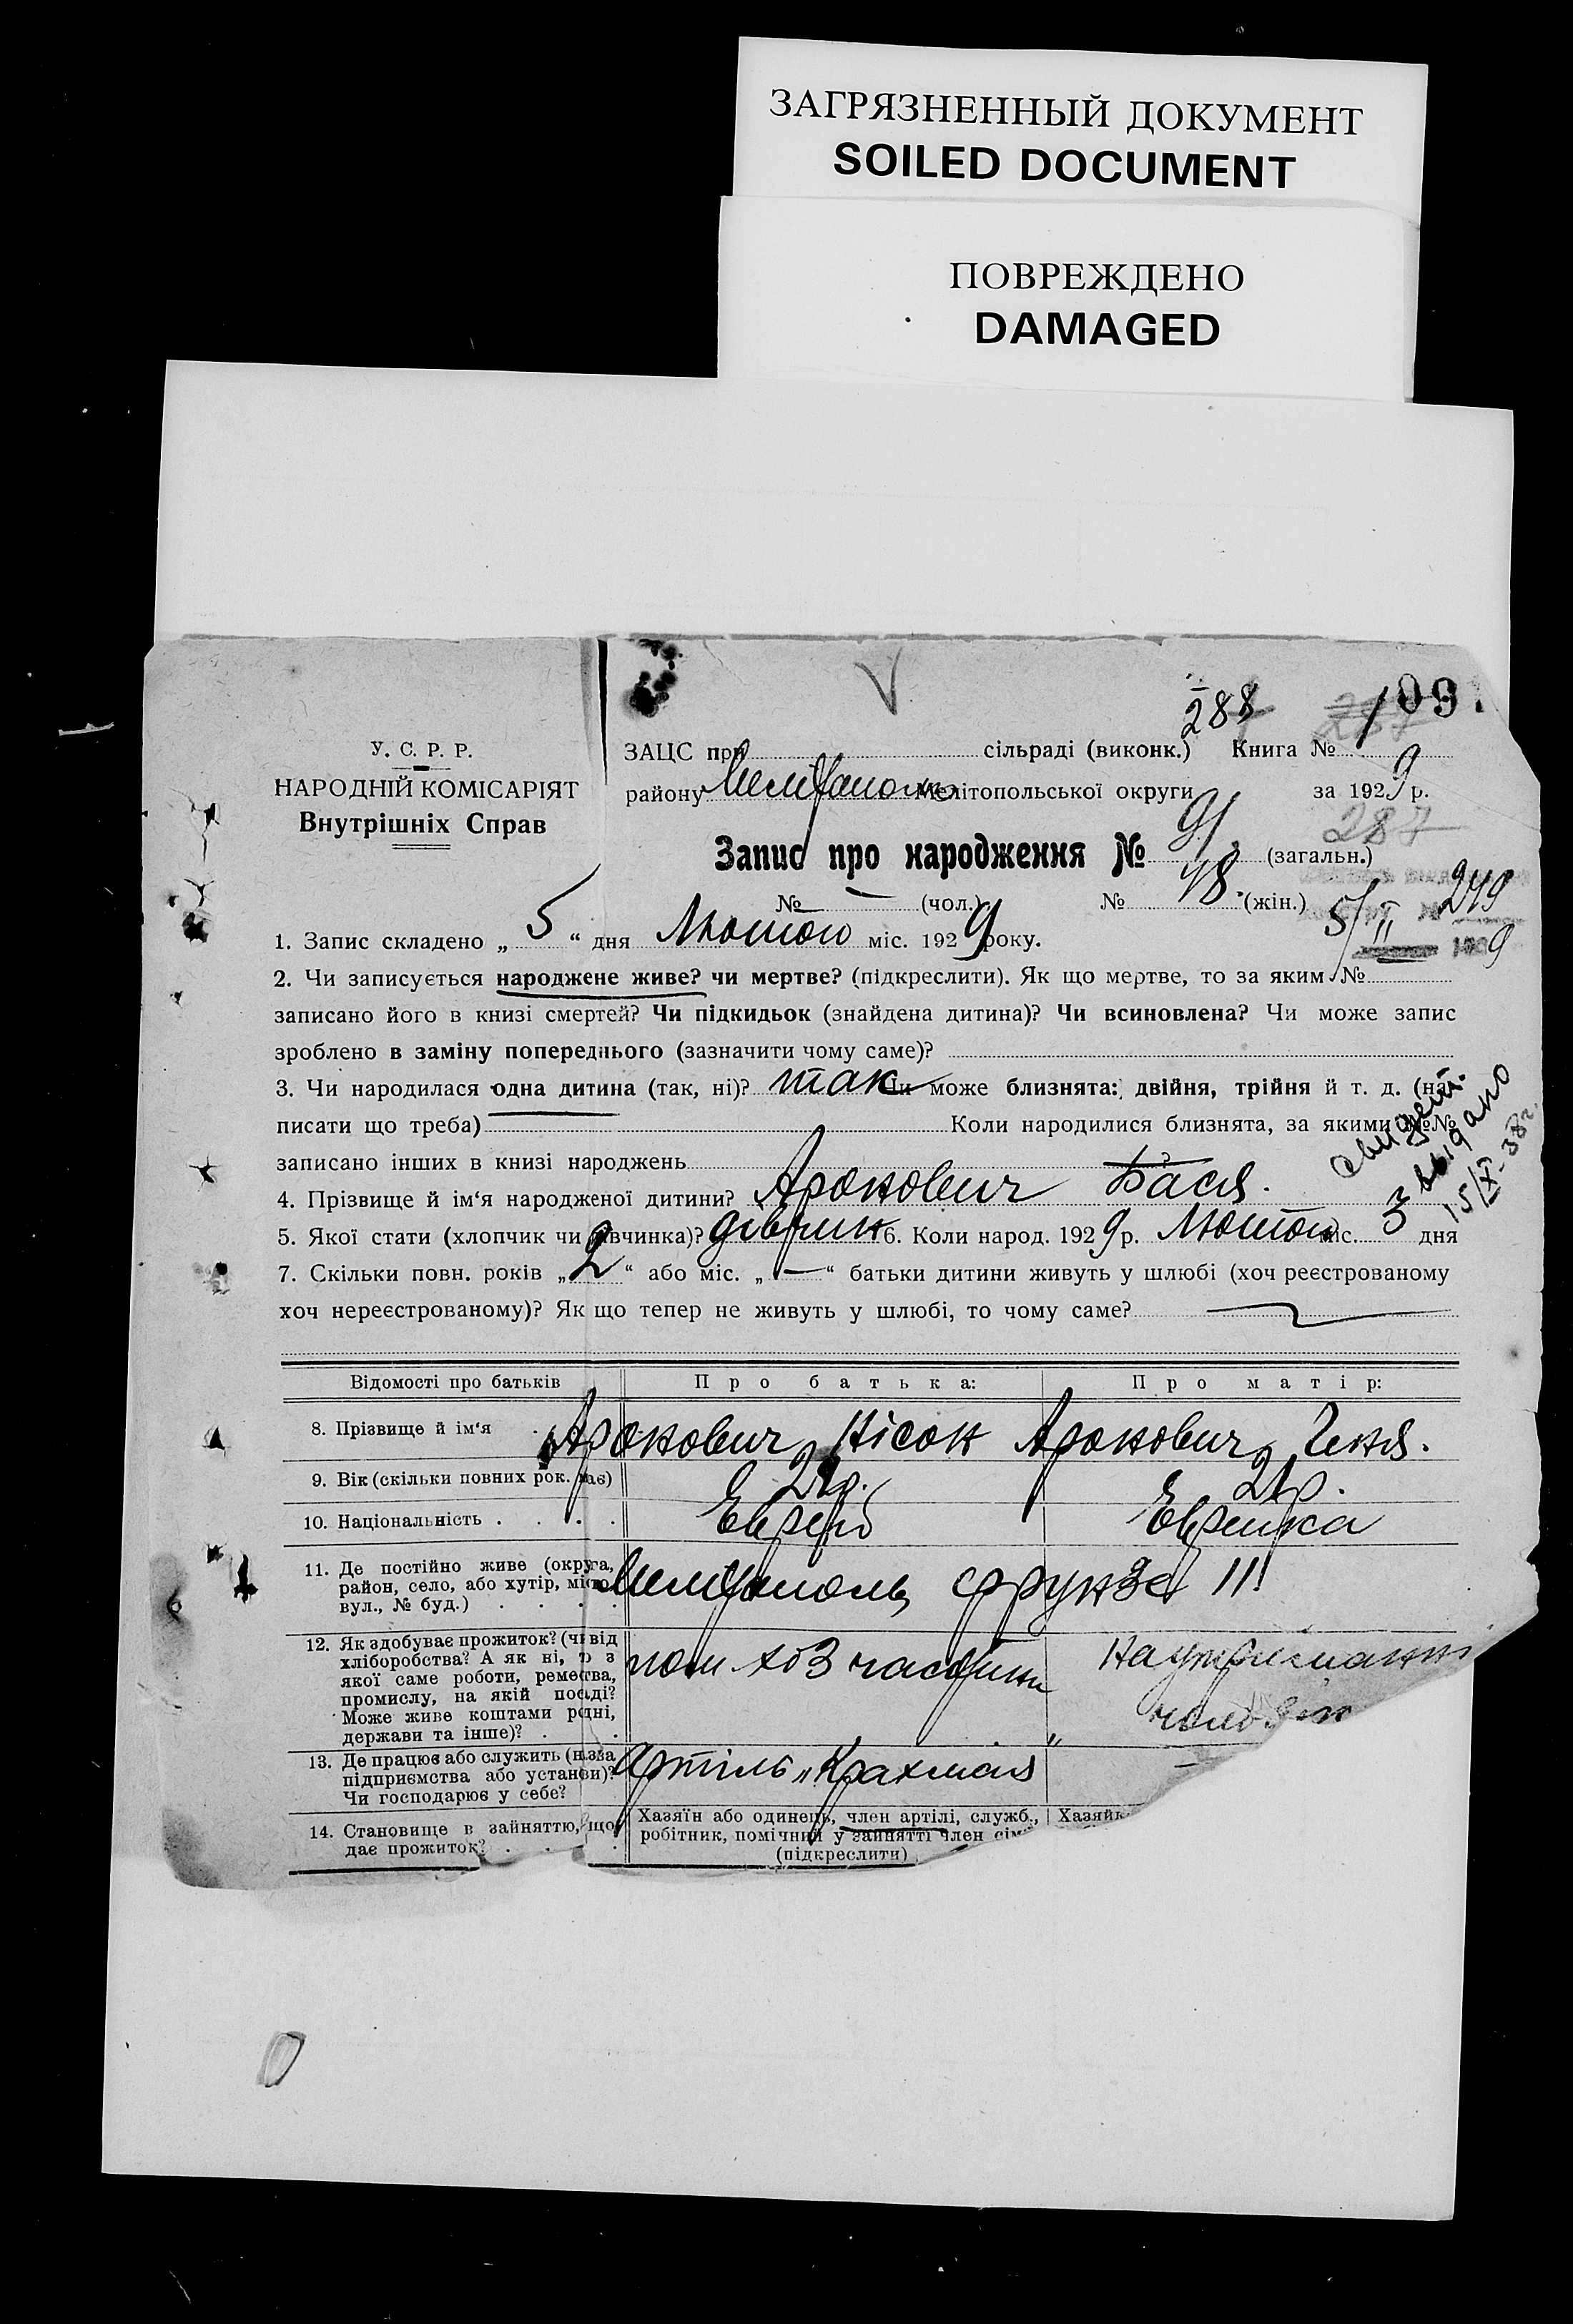 ЗАГРЯЗНЕННЫЙ ДОКУМЕНТ
SOILED DOCUMENT
ПОВРЕЖДЕНО
DAMAGED
288
109
У. С. Р. Р.
НАРОДНІЙ КОМІСАРІЯТ
Внутрішніх Справ
ЗАЦС при сільраді (виконк.) Книга №
району Мелітополь Мелітопольської округи за 1929 р.
287
Запис про народження № 91 (загальн.)
№ — (чол.) № 48 (жін.)
5/II 249
9
1. Запис складено „ 5 “ дня Лютого міс. 1929 року.
2. Чи записується народжене живе? чи мертве? (підкреслити). Як що мертве, то за яким №
записано його в книзі смертей? Чи підкидьок (знайдена дитина)? Чи всиновлена? Чи може запис
зроблено в заміну попереднього (зазначити чому саме)?
3. Чи народилася одна дитина (так, ні)? так Чи може близнята: двійня, трійня й т. д. (на-
писати що треба) Коли народилися близнята, за якими №№
записано інших в книзі народжень
свидет.
выдано
15/X-38г.
4. Прізвище й ім‘я народженої дитини? Аронович Бася.
5. Якої стати (хлопчик чи дівчинка)? дівчинк 6. Коли народ. 1929 р. Лютого міс. 3 дня
7. Скільки повн. років „ 2 “ або міс. „ — “ батьки дитини живуть у шлюбі (хоч реєстрованому
хоч нереєстрованому)? Як що тепер не живуть у шлюбі, то чому саме?
Відомості про батьків Про батька: Про матір:
8. Прізвище й ім‘я Аронович Нісон Аронович Геня.
9. Вік (скільки повних рок. має) 21р.
10. Національність Еврей Еврейка
11. Де постійно живе (округа,
район, село, або хутір, місто
вул., № буд.) Мелітополь, фрунзе 111
12. Як здобуває прожиток? (чи від
хліборобства? А як ні, то з
якої саме роботи, ремества,
промислу, на якій посаді?
Може живе коштами рідні,
держави та інше)?
на утриманні
13. Де працює або служить (назва
підприємства або установи)?
Чи господарює у себе?
Артіль „Крахмал
14. Становище в зайняттю, що
дає прожиток?
Хазяїн або одинець, член артілі, служб.,
робітник, помічний у зайнятті член сім
(підкреслити)
Хазяй